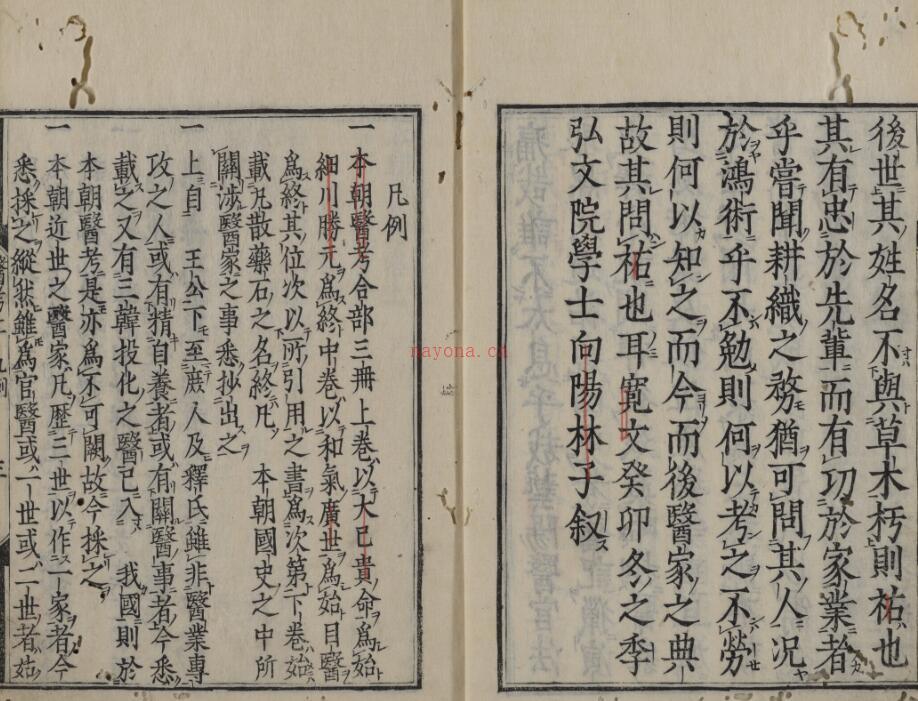 後世其姓名不與草木朽則祐也
其有忠於先輩而有功於家業者
乎嘗聞耕織之務猶可問其人況
於鴻術乎不勉則何以考之不勞
則何以知之而今而後醫家之典
故其問祐也耳寛文癸卯冬之季
弘文院學士向陽林子叙
凡例
一本朝醫考合部三冊上巻以大己貴命爲始
細川勝元爲終中巻以和氣廣世爲始目醫
爲終其位次以所引用之書爲次第下巻始
載凡散藥石之名終凡 本朝國史之中所
關渉醫家之事悉抄出之
一上自 王公下至庶人及釋氏雖非醫業專
攻之人或有精自養者或有關醫事者今悉
載之又有三韓投化之醫已入 我國則於
本朝醫考是亦爲不可闕故今採之
一本朝近世之醫家凡歴三世以作一家者今
悉採之縱然雖爲官醫或一世或二世者姑
nayona.ca